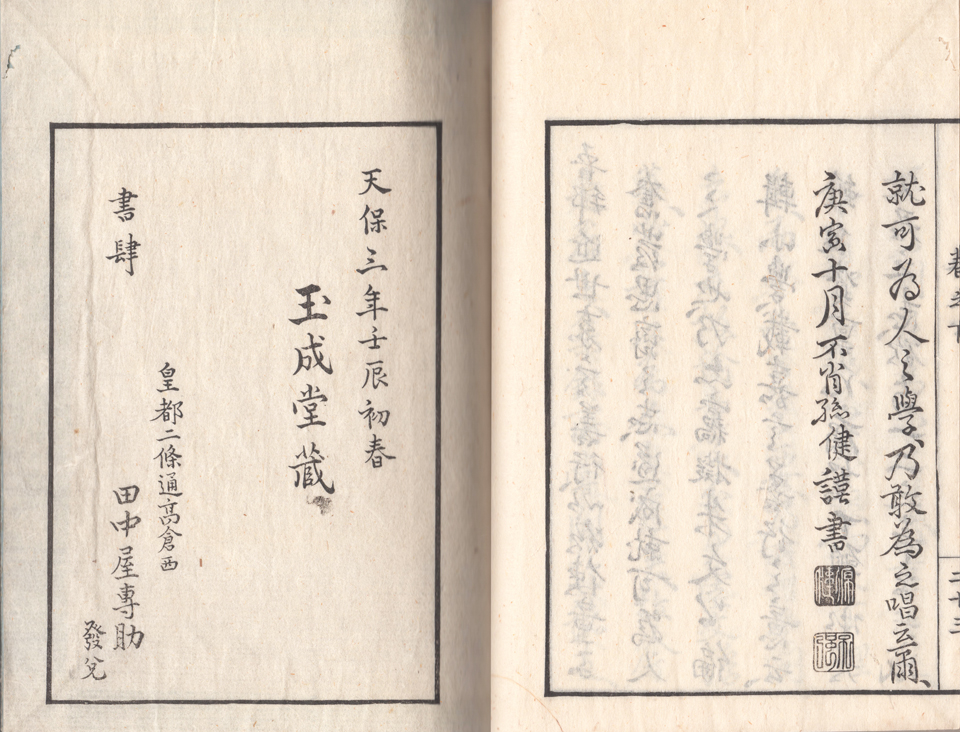 就可為人之學乃敢為之唱云爾、
庚寅十月不肖孫健謹書
二十三
天保三年壬辰初春
玉成堂蔵
皇都二條通高倉西
書肆
田中屋專助
發兌